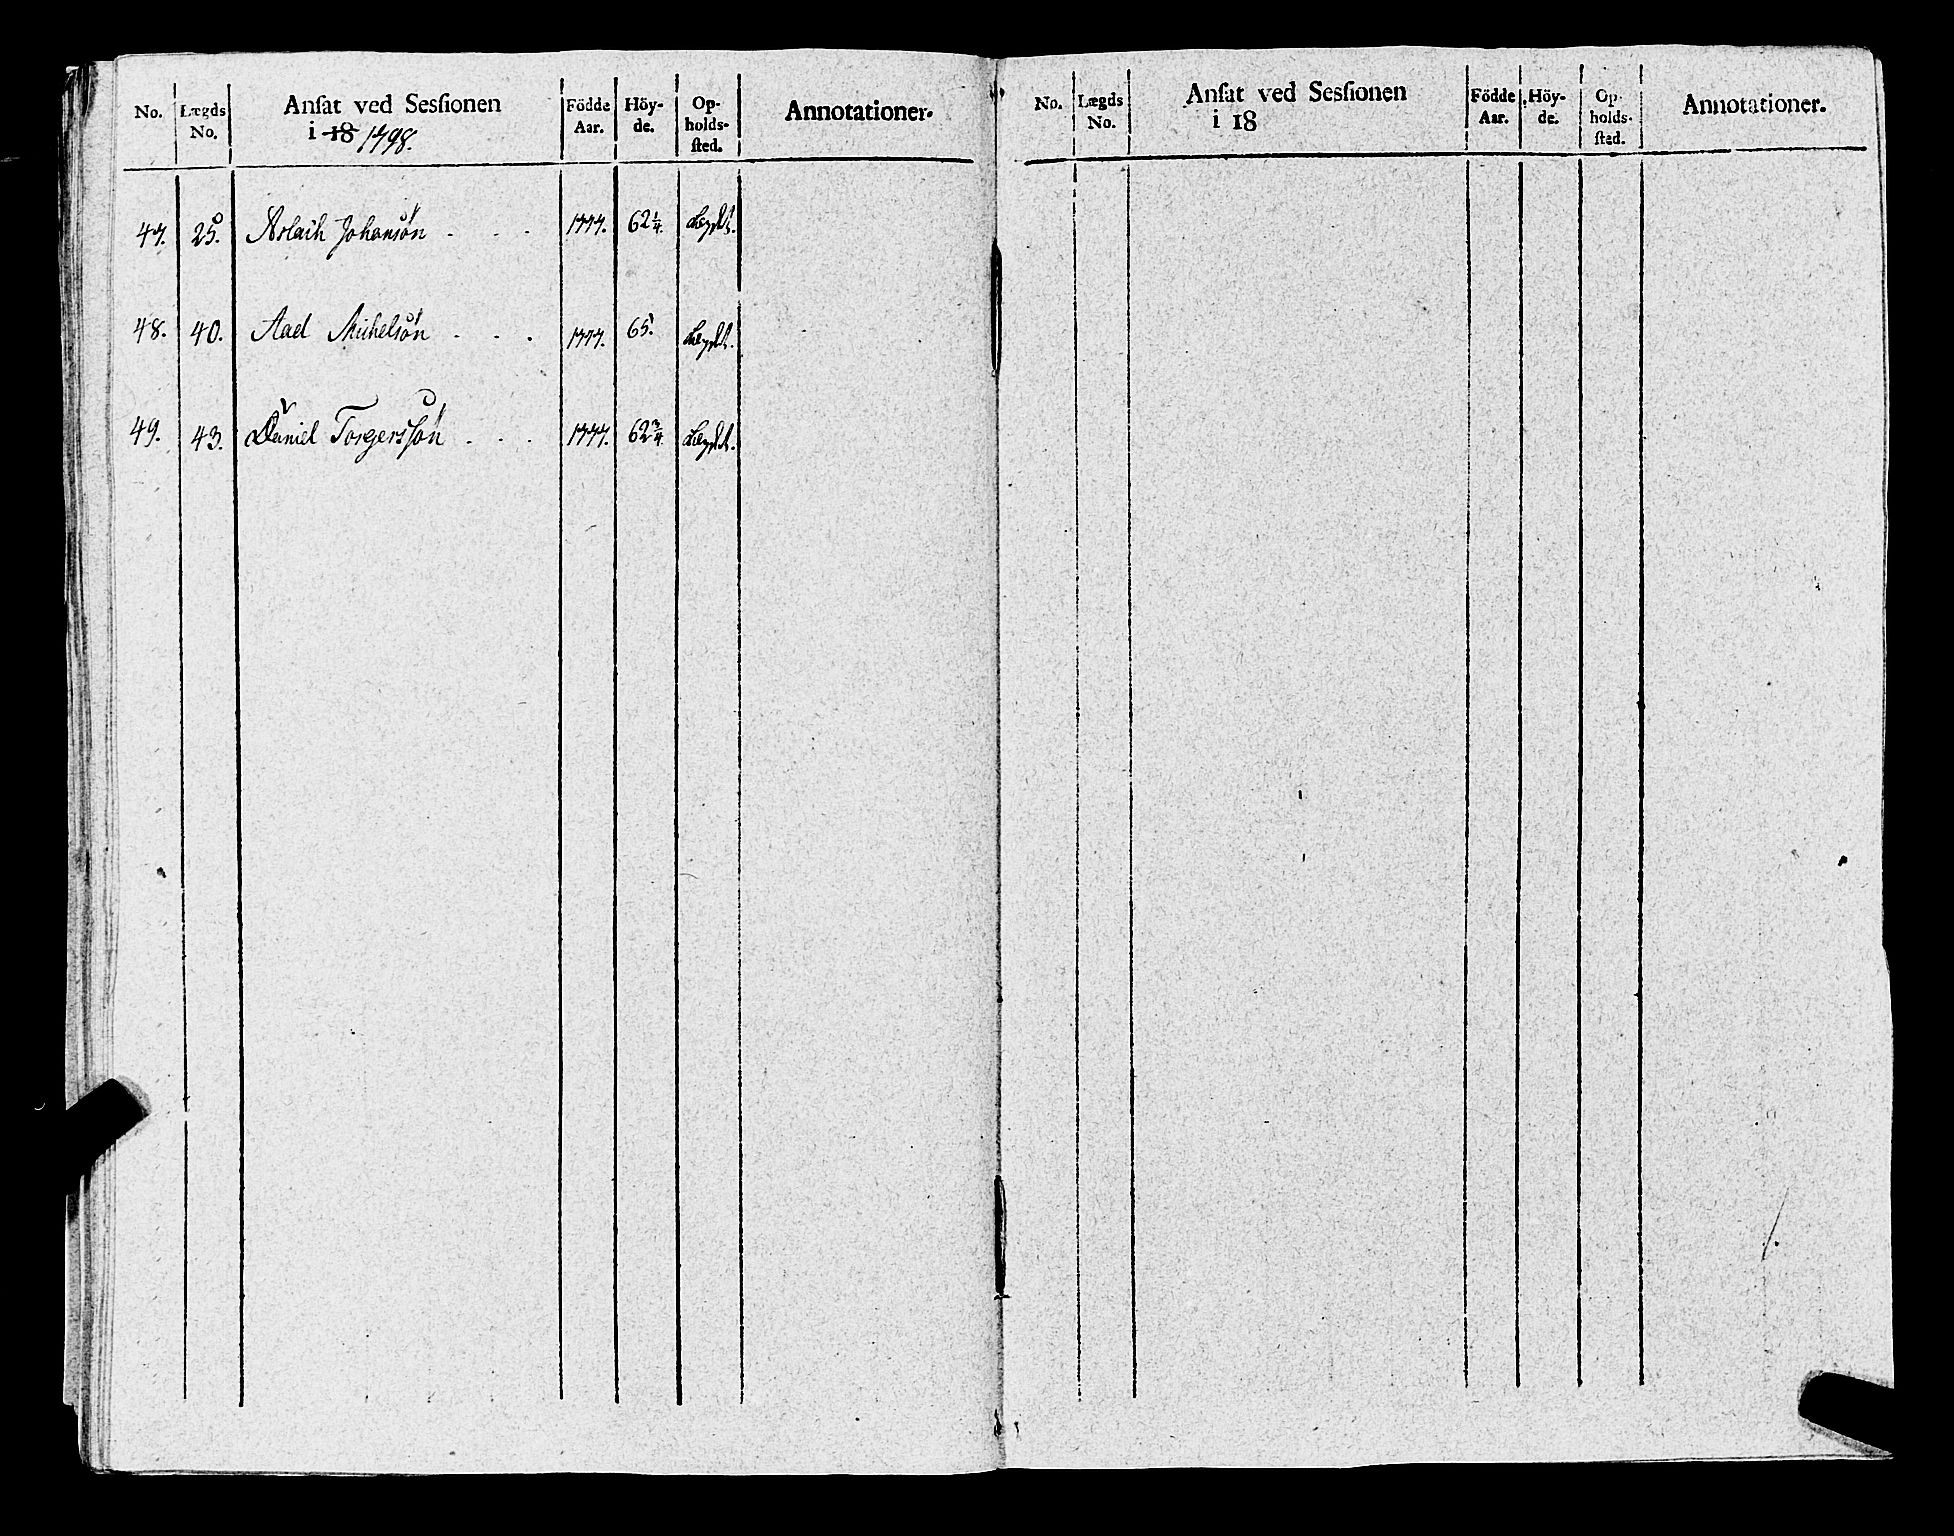 No. Lægds No. Ansat ved Sessionen i 18 1798. Födde Aar. Höyde. Opholdssted. Annotationer.
47. 25. Aslach Johansøn - - - 1777. 62 1/4. Lægdet.
48. 40. Aad Michelsøn - - - 1777. 65. Lægdet.
49. 43. Daniel Torgerssøn - - - 1777. 62 3/4. Lægdet.
No. Lægds No. Ansat ved Sessionen i 18 Födde Aar. Höyde. Opholdssted. Annotationer.